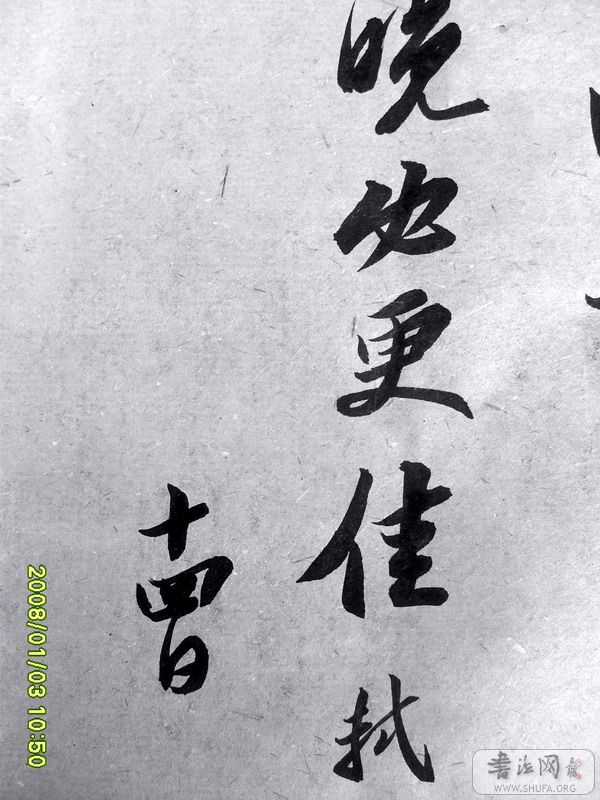 晚必更佳 轼
十四日
2008/01/03 10:50
书法网
WWW.SHUFA.ORG